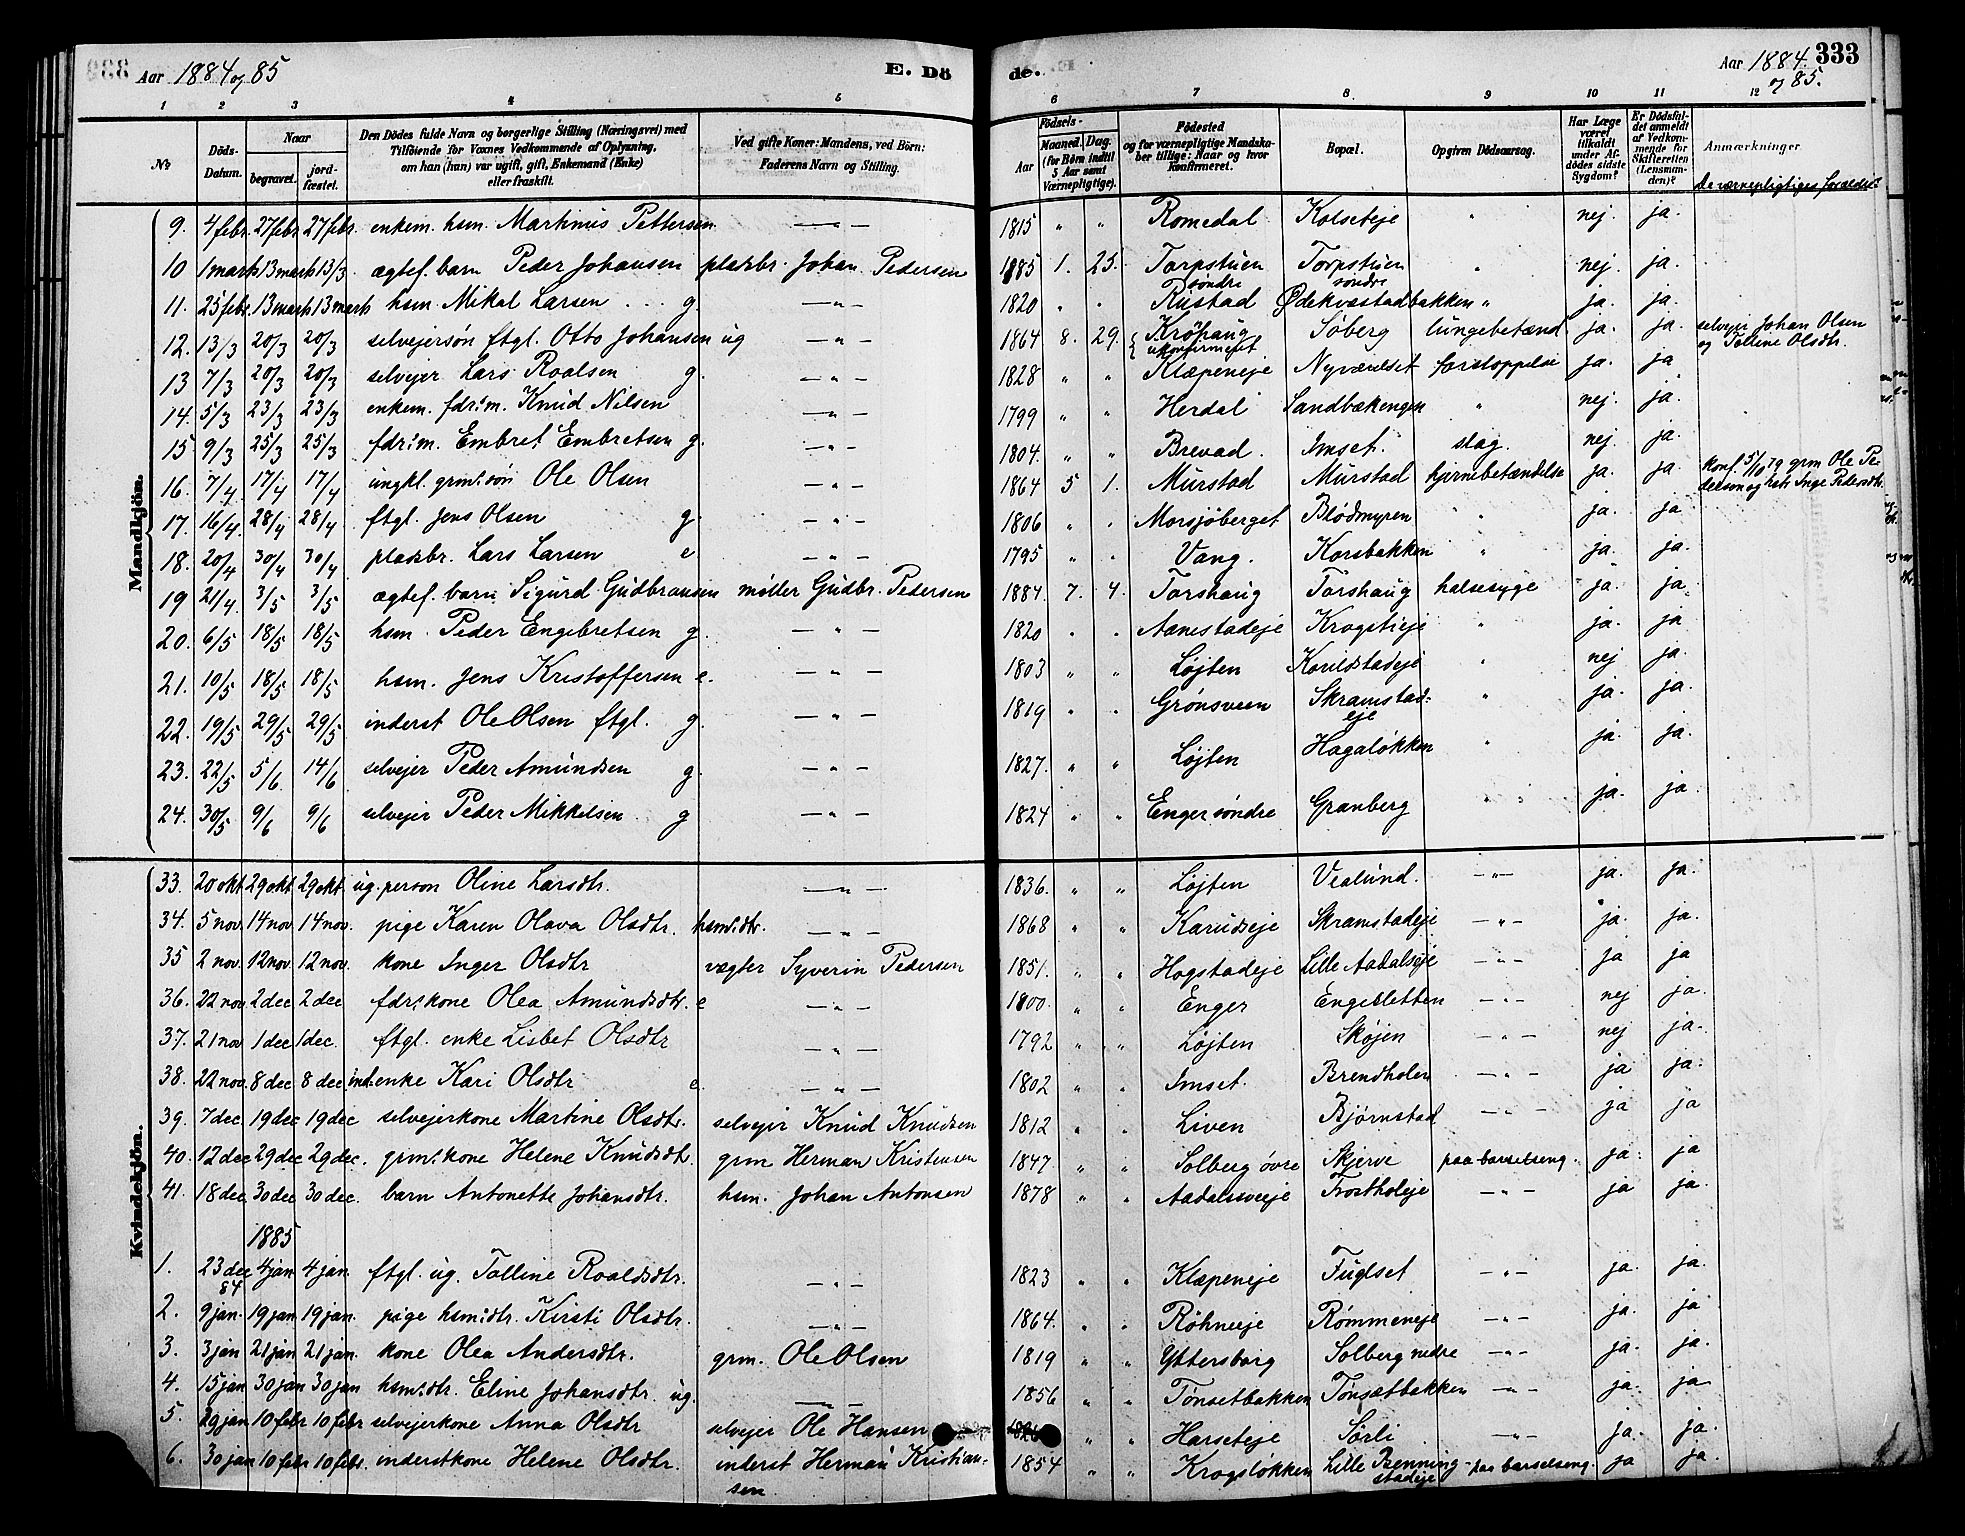 Aar 1884 og 85
E. Dö
de.
Aar 1884 og 85.
333
1 2 3 4 5 6 7 8. 9 10 11 12
№
Döds-Datum.
Naar
begravet.
jordfæstet.
Den Dödes fulde Navn og borgerlige Stilling (Næringsvei) med
Tilföiende for Voxnes Vedkommende af Oplysning,
om han (hun) var ugift, gift, Enkemand (Enke)
eller fraskilt.
Ved gifte Koner: Mandens, ved Börn:
Faderens Navn og Stilling.
Födsels-
Aar
Maaned. Dag.
(for Börn indtil
5 Aar samt
Værnepligtige).
Födested
og for værnepligtige Mandska-
ber tillige: Naar og hvor
Konfirmeret.
Bopæl.
Opgiven Dödsaarsag.
Har Læge
været
tilkaldt
under Af-
dödes sidste
Sygdom?
Er Dödsfal-
det anmeldt
af Vedkom-
mende for
Skifteretten
(Lensman-
den)?
Anmærkninger
De værnepligtiges forældre
Mandkjön.
9. 4 febr. 27 febr 27 febr. enkem. hsm. Martinus Pettersen. — " — 1815 " " Romedal Kolseteje " nej. ja.
10 1 marts 13 marts 13/3 ægtef. barn Peder Johansen pladsbr. Johan Pedersen 1885 1. 25. Torpstuen søndre Torpstuen søndre " nej. ja.
11. 25 febr. 13 marts 13 marts hsm. Mikal Larsen g. — " — 1820 " " Rustad Ødekvæstadbakken " ja. ja.
12. 13/3 20/3 20/3 selvejersøn ftgl. Otto Johansen ug — " — 1864 8. 29. { Krøhaug ukonfirmeret Søberg lungebetænd. ja. ja. selvejer Johan Olsen og Tolline Olsdtr.
13 7/3 20/3 20/3 selvejer Lars Roalsen g. — " — 1828 " " Klæpeneje Nyværelset forstoppelse ja. ja
14. 5/3 23/3 23/3 enkem. fdr:m. Knud Nilsen — " — 1799 " " Herdal Sandbækengen " nej. ja.
15 9/3 25/3 25/3 fdr:m. Embret Embretsen g. — " — 1804. " " Brevad Imset. slag. nej ja.
16. 7/4 17/4 17/4 ungkl. grmt:søn Ole Olsen — " — 1864 5 1. Murstad Murstad hjernebetændelse ja. ja. konf. 5/10 79 grm Ole Pedersen og hstr Inge Pedersdtr
17. 16/4. 28/4 28/4 ftgl. Jens Olsen g. — " — 1806 " " Morsjøberget Blødmyren " ja. ja
18. 20/4 30/4 30/4 pladsbr. Lars Larsen e — " — 1795 " " Vang. Korsbakken " ja. ja.
19 21/4. 3/5 3/5 ægtef. barn Sigurd Gudbransen møller Gudbr. Pedersen 1884. 7. 4. Torshaug Torshaug halsesyge ja. ja.
20. 6/5 18/5 18/5 hsm. Peder Engebretsen g. — " — 1820 " " Aanestadeje Krogstieje " ja. ja
21. 10/5 18/5 18/5 hsm. Jens Kristoffersen e. — " — 1803 " " Løjten Korildstadeje " nej ja.
22. 19/5 29/5 29/5 inderst Ole Olsen ftgl. g. — " — 1819 " " Grønsveen Skramstadeje " ja. ja.
23. 22/5 5/6. 14/6 selvejer Peder Amundsen g. — " — 1827. " " Løjten Hagaløkken " ja. ja.
24. 30/5 9/6 9/6 selvejer Peder Mikkelsen g — " — 1824 " " Enger søndre Granberg " ja. ja.
Kvindekjön.
33. 20 okt. 29 okt. 29 okt. ug. person Oline Larsdtr. — " — 1836. " " Løjten Vealund. — " — ja. ja.
34. 5 nov. 14 nov 14 nov. pige Karen Olava Olsdtr. hsm:dtr. — " — 1868 " " Karudseje Skramstadeje — " — ja. ja.
35 2 nov. 12 nov. 12 nov. kone Inger Olsdtr vægter Syverin Pedersen 1851. " " Hogstadeje Lille Aadalseje — " — ja ja
36. 22 nov 2 dec 2 dec fdr:kone Olea Amundsdtr. e — " — 1800. " " Enger Engesletten — " — nej ja.
37. 21 nov 1 dec 1 dec. ftgl. enke Lisbet Olsdtr — " — 1792 " " Løjten Skøjen — " — nej ja.
38. 22 nov. 8 dec 8 dec ind. enke Kari Olsdtr e. — " — 1802 " " Imset. Brendholen — " — ja ja.
39. 7 dec. 19 dec 19 dec selvejerkone Martine Olsdtr. selvejer Knud Knudsen 1812 " " Liven Bjørnstad — " — ja ja
40. 12 dec 29 dec 29 dec. grm:kone Helene Knudsdtr. grm Herman Kristensen 1847. " " Solberg øvre Skjerve paa barselseng. ja. ja
41. 18 dec 30 dec 30 dec. barn Antonette Johansdtr. hsm. Johan Antonsen 1878 " " Aadalsveeje Frostholeje — " — ja ja.
1885
1. 23 dec 84 4 jan 4 jan. ftgl. ug. Tolline Roaldsdtr. — " — 1823 " " Klæpeneje Fuglset — " — ja. ja.
2. 9 jan. 19 jan 19 jan. pige hsm:dtr. Kirsti Olsdtr. — " — 1864. " " Røhneeje Rømmeneje — " — ja. ja
3. 3 jan 21 jan 21 jan. kone Olea Andersdtr. grm. Ole Olsen 1819 " " Yttersborg Solberg nedre — " — ja. ja.
4. 15 jan 30 jan 30 jan hsm:dtr. Eline Johansdtr. ug. — " — 1856 " " Tønsetbakken Tønsætbakken — " — ja. ja
5. 29 jan 10 febr 10 febr selvejerkone Anna Olsdtr selvejer Ole Hansen " " Harseteje Sørli — " — ja. ja.
6. 30 jan 10 febr 10 febr. inderstkone Helene Olsdtr. inderst Herman Kristiansen 1854 " " Krogsløkken Lille Benningstadeje paa barselseng. ja ja.